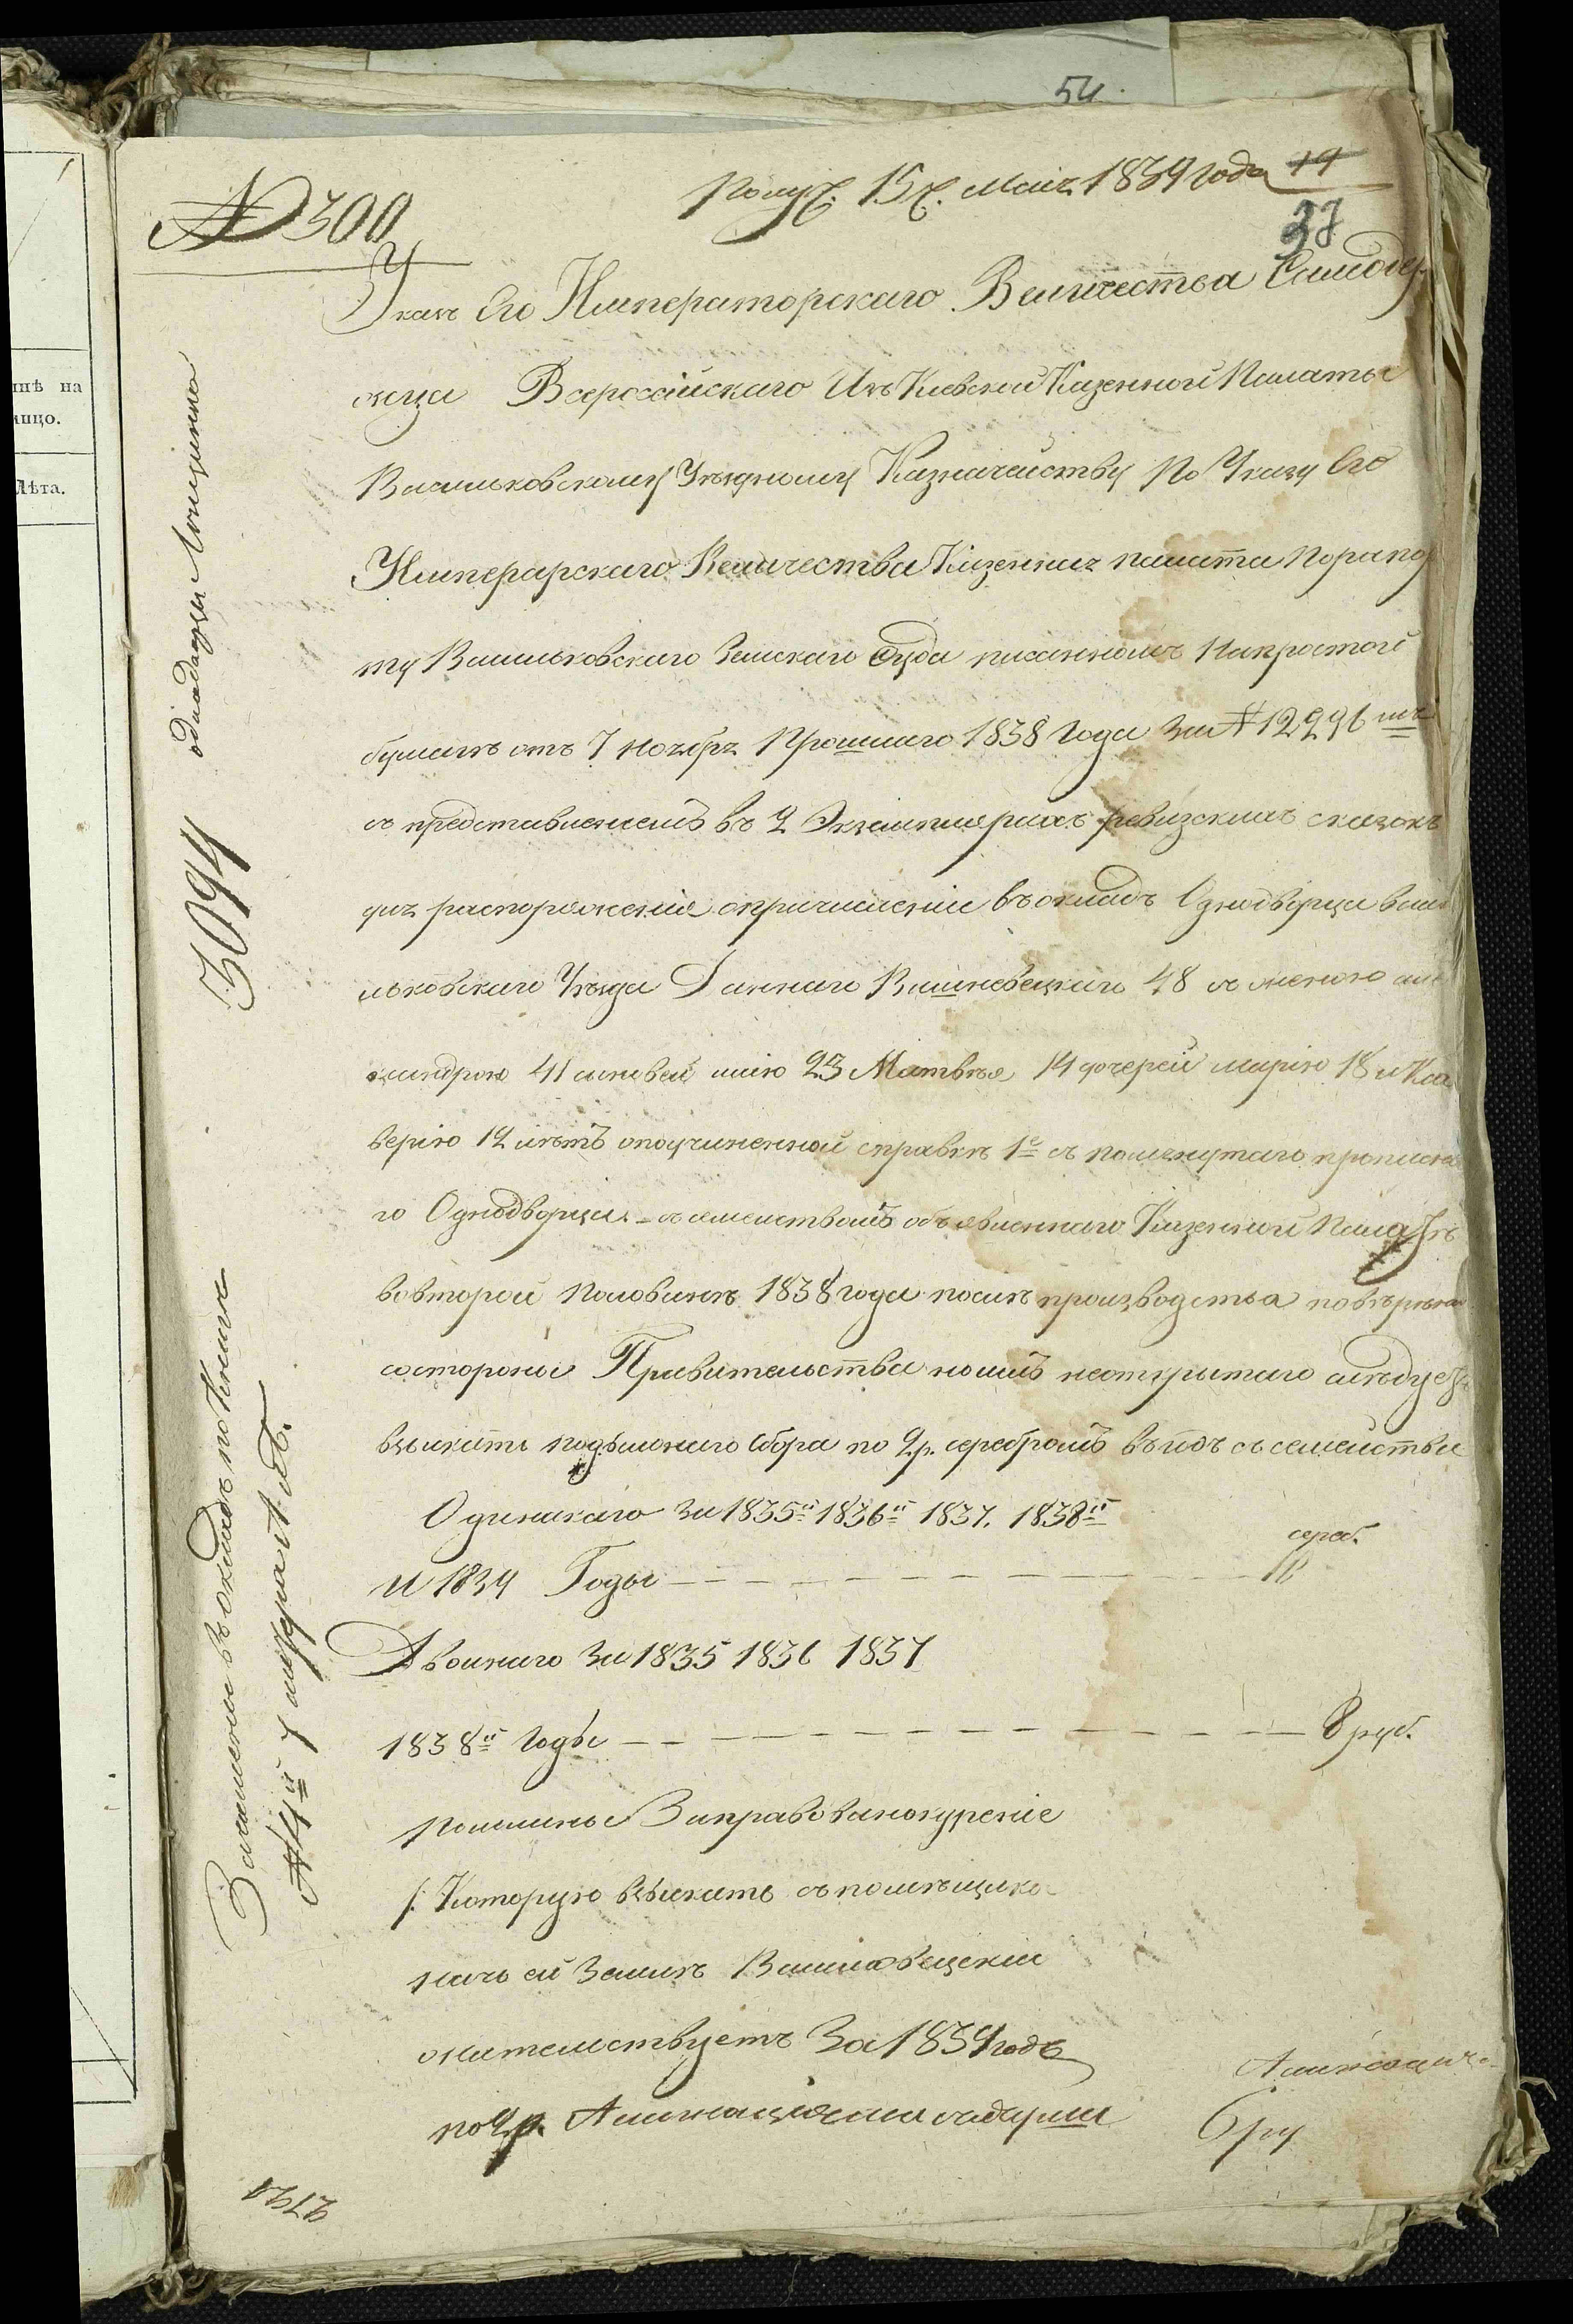 54
№ 300
Получ. 15 ч. Мая 1839 года 19
37
Указъ Его Императорскаго Величества Самодер
жца Всероссійскаго Изъ Кіевской Казенной Палаты
Васильковскому Уѣздному Казначейству По Указу Его
Имперарскаго Величества Казенная палата По рапор
ту Васильковскаго Земскаго Суда писанномъ На простой
бумагѣ отъ 7 ноября Прошлаго 1838 Года За № 12996
съ представленіемъ въ 2 Экземплярахъ ревизскихъ сказокъ
для распоряженія о причисленіе въ окладъ Однодворца Васи
льковскаго Уѣзда Вишневецкаго 48 съ женою але
ксандрою 41 сыновей 23 Матвѣя 14 дочерей марію 18 и Кса
верію 12 лѣтъ по учиненной справкѣ 1е съ помянутаго прописна
го Однодворца съ семействомъ объявленнаго Казенной Палатѣ
во второй Половинѣ 1838 года послѣ производства повѣрки
со стороны Правительства но имъ неоткрытаго слѣдуетъ
взыскать подымнаго сбора по 2р. серебромъ въ годъ съ семейства
Одинакаго За 1835й 1836й 1837. 1838й
сереб.
и 1839 Годы — 10
Двойнаго За 1835 1836 1837
1838й Годы — 8 руб.
пошлины За право винокуренія
/: Которую взыскать съ помѣщика
на чьей Землѣ Вишневецкій
жительствуетъ За 1839 годъ
Ассигнаціями
по 2р. Ассигнаціями съ души 6 ру
Зачислены въ окладъ по Книгѣ
№ 4й у литера А. об.
3094